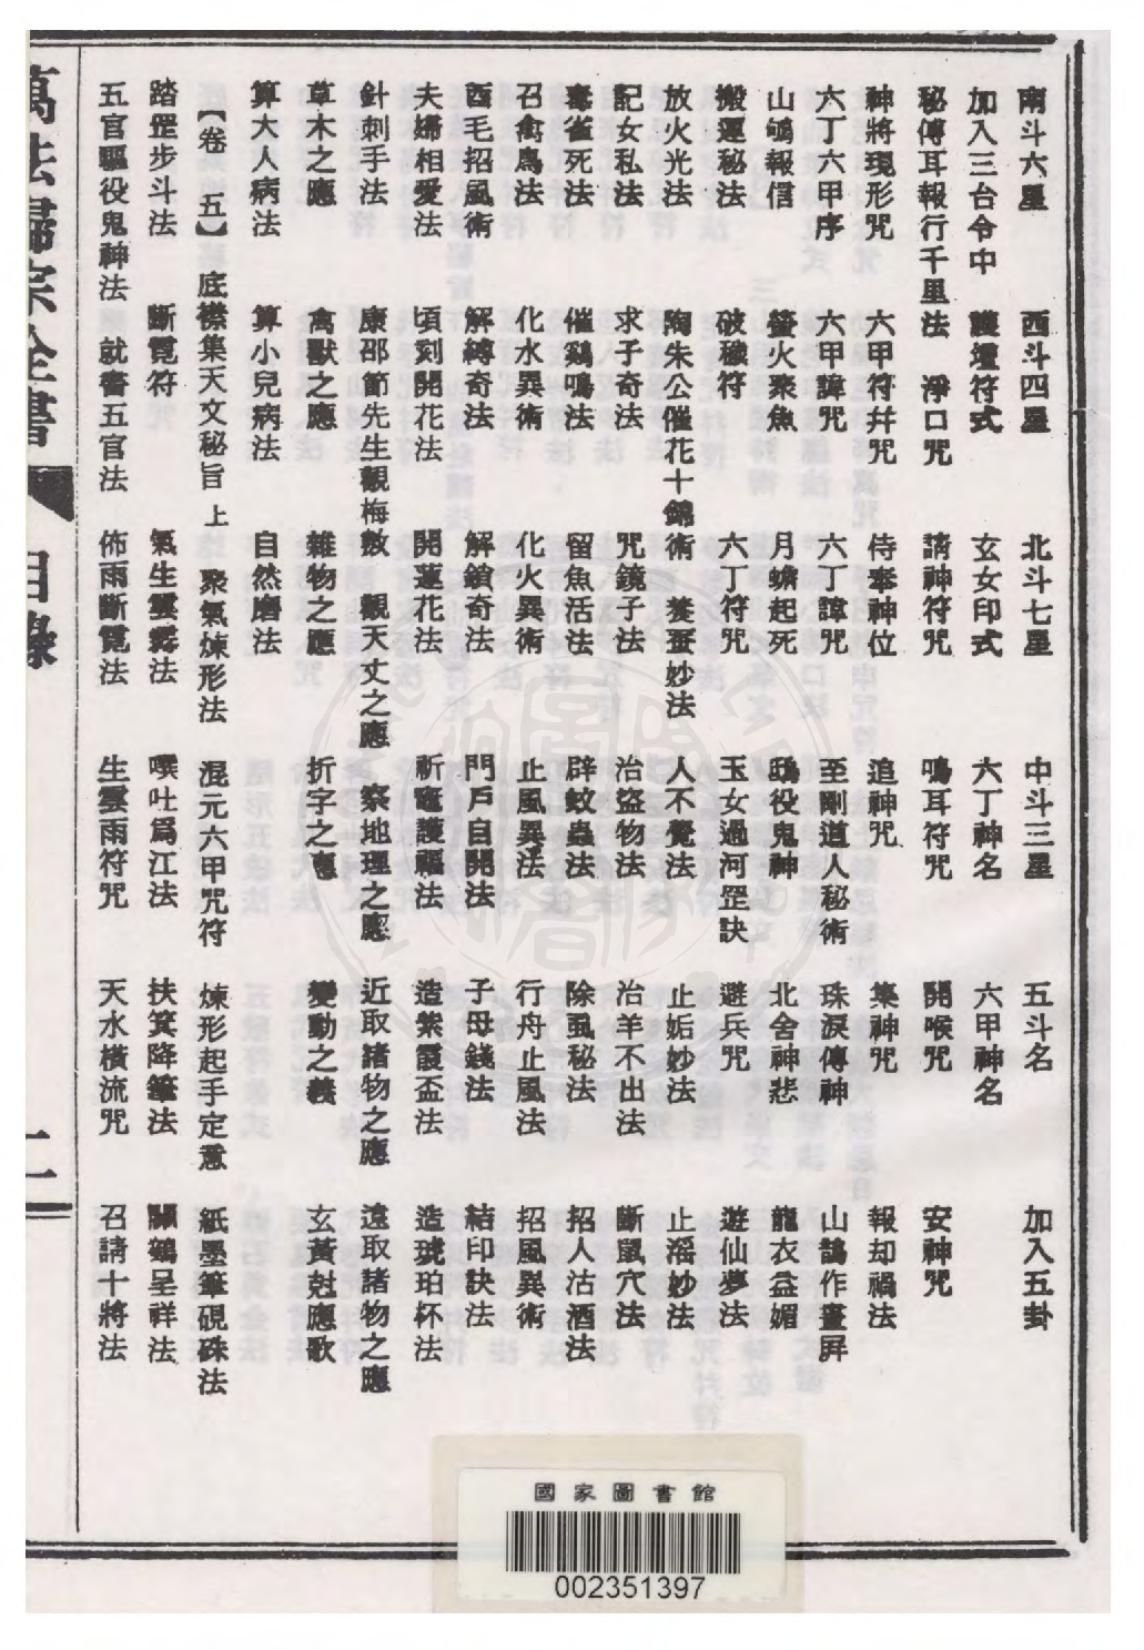 南斗六星 西斗四星 北斗七星 中斗三星 五斗名 加入五卦
加入三台令中 護壇符式 玄女印式 六丁神名 六甲神名
秘傳耳報行千里法 淨口咒 請神符咒 鳴耳符咒 開喉咒 安神咒
神將現形咒 六甲符幷咒 侍奉神位 追神咒 集神咒 報却禍法
六丁六甲序 六甲諱咒 六丁諱咒 至剛道人秘術 珠淚傳神 山鵲作畫屛
山鳴報信 螢火聚魚 月蟾起死 鴟役鬼神 北舍神悲 龍衣益媚
搬運秘法 破穢符 六丁符咒 玉女過河罡訣 避兵咒 遊仙夢法
放火光法 陶朱公催花十錦術 養蚕妙法 人不覺法 止妬妙法 止淫妙法
記女私法 求子奇法 咒鏡子法 治盜物法 治羊不出法 斷鼠穴法
毒雀死法 催鷄鳴法 留魚活法 辟蚊蟲法 除虱秘法 招人沽酒法
召禽鳥法 化水異術 化火異術 止風異法 行舟止風法 招風異術
酉毛招風術 解縛奇法 解鎖奇法 門戶自開法 子母錢法 結印訣法
夫婦相愛法 頃刻開花法 開蓮花法 祈竈護福法 造紫霞盃法 造琥珀杯法
針刺手法 康邵節先生觀梅數 觀天文之應 察地理之應 近取諸物之應 遠取諸物之應
草木之應 禽獸之應 雜物之應 折字之應 變動之義 玄黃尅應歌
算大人病法 算小兒病法 自然磨法
【卷 五】 底襟集天文秘旨 上 聚氣煉形法 混元六甲咒符 煉形起手定意 紙墨筆硯硃法
踏罡步斗法 斷霓符 氣生雲霧法 噀吐爲江法 扶箕降筆法 關鶴呈祥法
五官驅役鬼神法 就書五官法 佈雨斷霓法 生雲雨符咒 天水橫流咒 召請十將法
萬法歸宗全書 目錄 二
國家圖書館
002351397